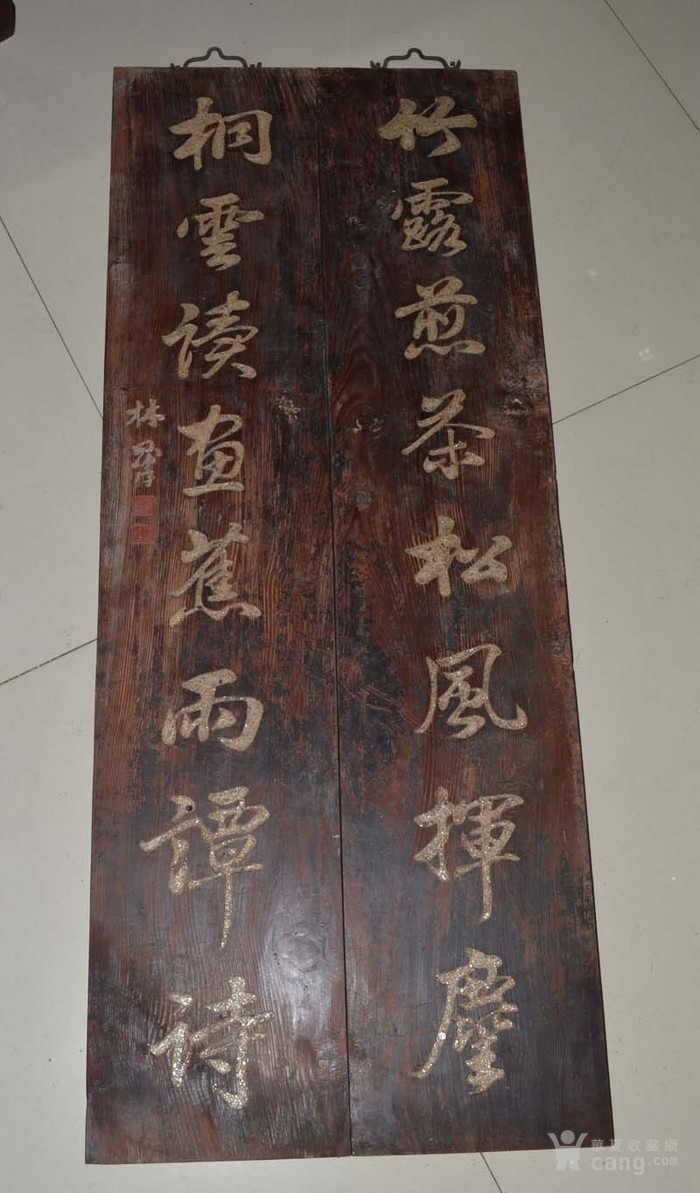 竹露煎茶松風揮麈
桐雲讀画蕉雨譚詩
林
華夏收藏網
cang.com